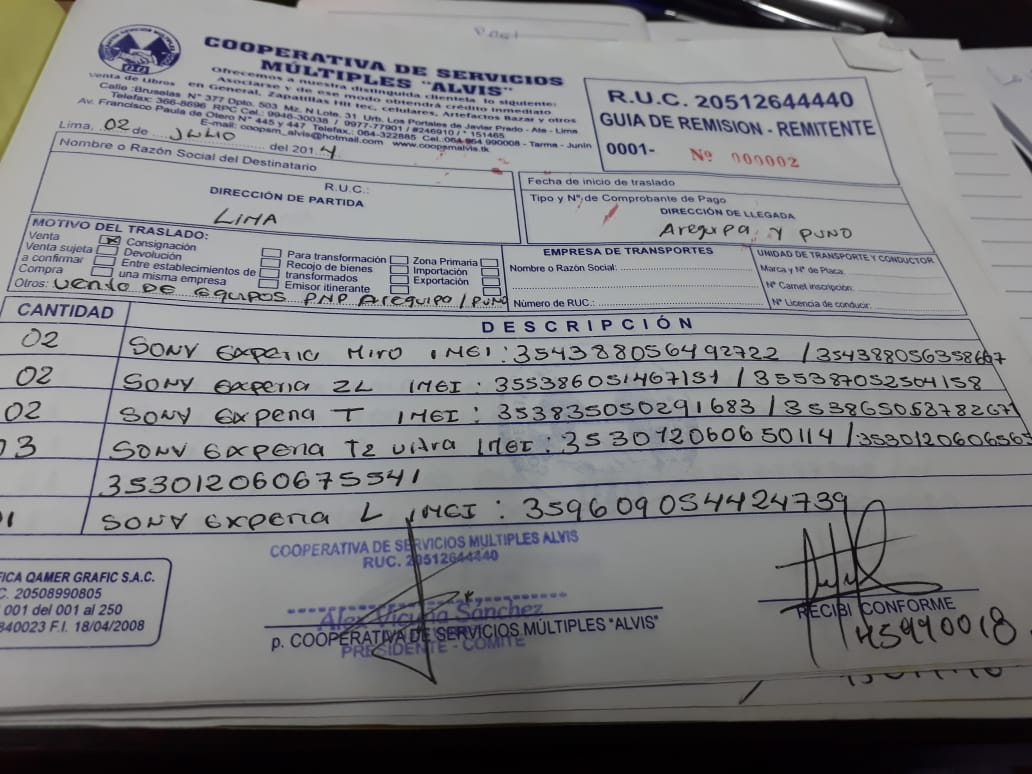 COOPERATIVA DE SERVICIOS
MÚLTIPLES "ALVIS"
Ofrecemos a nuestra distinguida clientela lo siguiente:
Asociarse y de ese modo obtendrá crédito inmediato
Venta de Libros en General, Zapatillas Hill tec, celulares, Artefactos Bazar y otros
Calle: Bruselas N° 377 Dpto. 503 Mz. N Lote. 31 Urb. Los Portales de Javier Prado - Ate - Lima
Telefax: 366-8696 RPC Cel.: 9946-30038 / 0977-77901 / #246910 / * 151465
Av. Francisco Paula de Otero N° 445 y 447 Telefax.: 064-322885 Cel.: 064-964 990008 - Tarma - Junin
E-mail: coopsm_alvis@hotmail.com www.coopsmalvis.tk
R.U.C. 20512644440
GUIA DE REMISION - REMITENTE
0001- Nº 000002
Lima, 02 de JULIO del 2014
Nombre o Razón Social del Destinatario
R.U.C.:
Fecha de inicio de traslado
Tipo y Nº de Comprobante de Pago
DIRECCIÓN DE PARTIDA
LIMA
DIRECCIÓN DE LLEGADA
Arequipa Y PUNO
MOTIVO DEL TRASLADO:
Venta
Venta sujeta
a confirmar
Compra
Consignación
Devolución
Entre establecimientos de
una misma empresa
Para transformación
Recojo de bienes
transformados
Emisor itinerante
Zona Primaria
Importación
Exportación
Otros: Venta DE Equipos PNP Arequipa / PUNO
EMPRESA DE TRANSPORTES
Nombre o Razón Social:
Número de RUC.:
UNIDAD DE TRANSPORTE Y CONDUCTOR
Marca y Nº de Placa
Nº Carnet inscripción:
Nº Licencia de conducir:
CANTIDAD DESCRIPCIÓN
02 SONY Experia Miro IMEI: 354388056492722 / 354388056358667
02 SONY Experia ZL IMEI: 355386051467151 / 355387052504158
02 SONY Experia T IMEI: 353835050291683 /
03 SONY Experia T2 Ultra IMEI: 353012060650114 /
353012060675541
SONY Experia L IMEI: 359609054424739
COOPERATIVA DE SERVICIOS MULTIPLES ALVIS
RUC. 20512644440
Alex Vicuña Sánchez
p. COOPERATIVA DE SERVICIOS MÚLTIPLES "ALVIS"
PRESIDENTE - COMITE
RECIBI CONFORME
45990018
FICA QAMER GRAFIC S.A.C.
C. 20508990805
001 del 001 al 250
840023 F.I. 18/04/2008